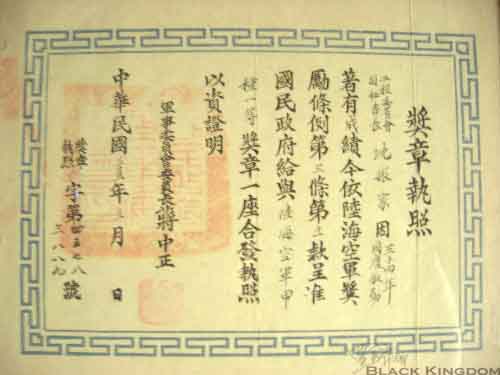 獎章執照
因三十四年
著有成績今依陸海空軍獎
勵條例第三條第二款呈准
國民政府給與陸海空軍甲
種一等獎章一座合發執照
以資證明
軍事委員會委員長蔣中正
中華民國年月日
獎章執照字第號
三一八八九
BLACK KINGDOM